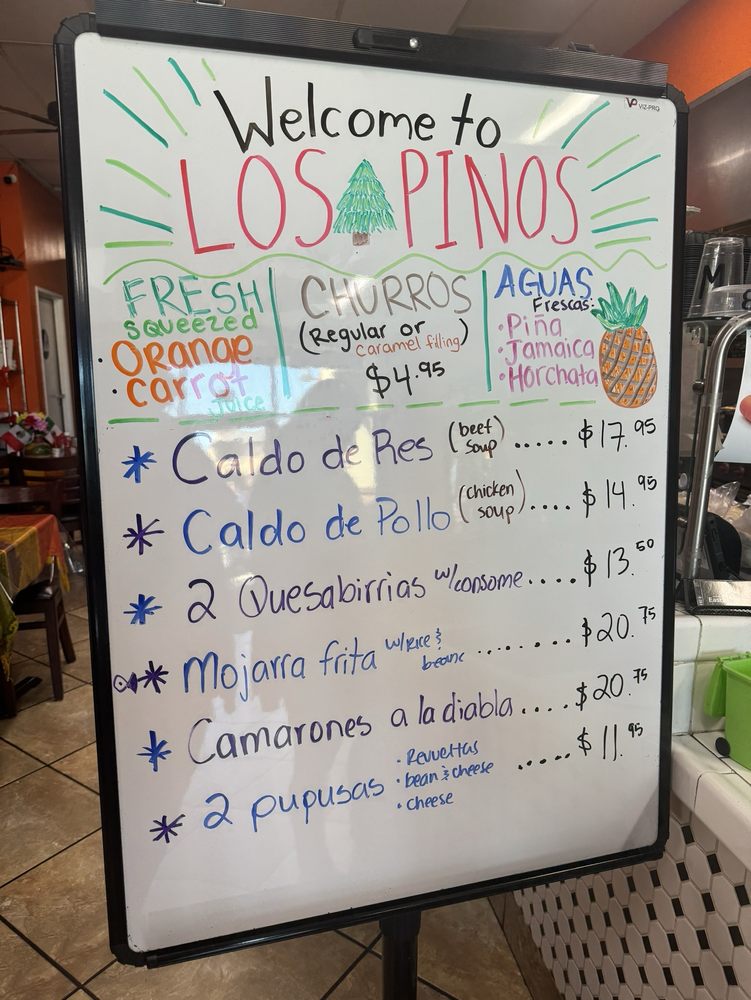 VIZ-PRO
Welcome to
LOS PINOS
FRESH
squeezed
• Orange
• Carrot
Juice
CHURROS
(Regular or caramel filling)
$4.95
AGUAS
Frescas:
• Piña
• Jamaica
• Horchata
* Caldo de Res (beef soup) ..... $17.95
* Caldo de Pollo (chicken soup) .... $14.95
* 2 Quesabirrias w/consome.... $13.50
* Mojarra frita w/rice & beans ....... $20.75
* Camarones a la diabla.... $20.75
* 2 pupusas • Revueltas • bean & cheese • cheese ..... $11.95
M